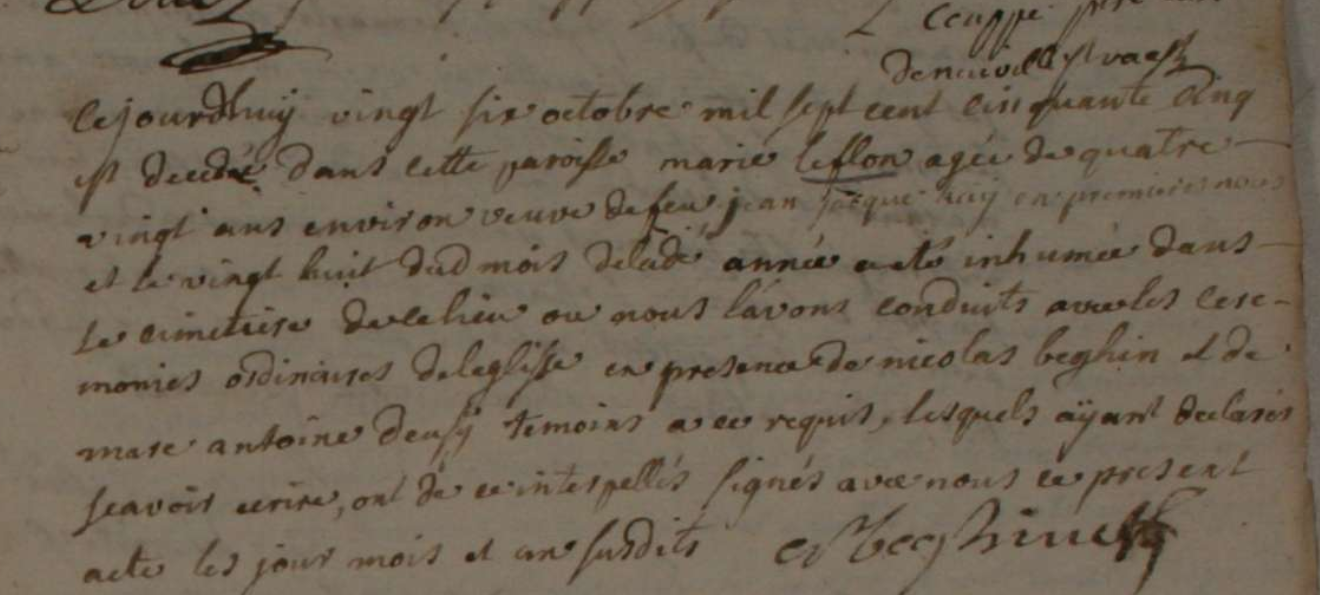 ceuppe
de neuville st vaast
Cejourdhuy vingt six octobre mil sept cent cinquante cinq
est decedée dans cette paroisse marie leflon agée de quatre
vingt ans environ veuve de feu jean jacque huy en premieres noces
et le vingt huit dud mois de lade année a eté inhumée dans
le cimetiere de ce lieu ou nous l'avons conduits avec les cere-
monies ordinaires de leglisse en presence de nicolas beghin et de
marc antoine deusy temoins a ce requis, lesquels aÿant declarés
scavoir ecrire, ont de ce interpellés signés avec nous ce present
acte les jour mois et an susdits